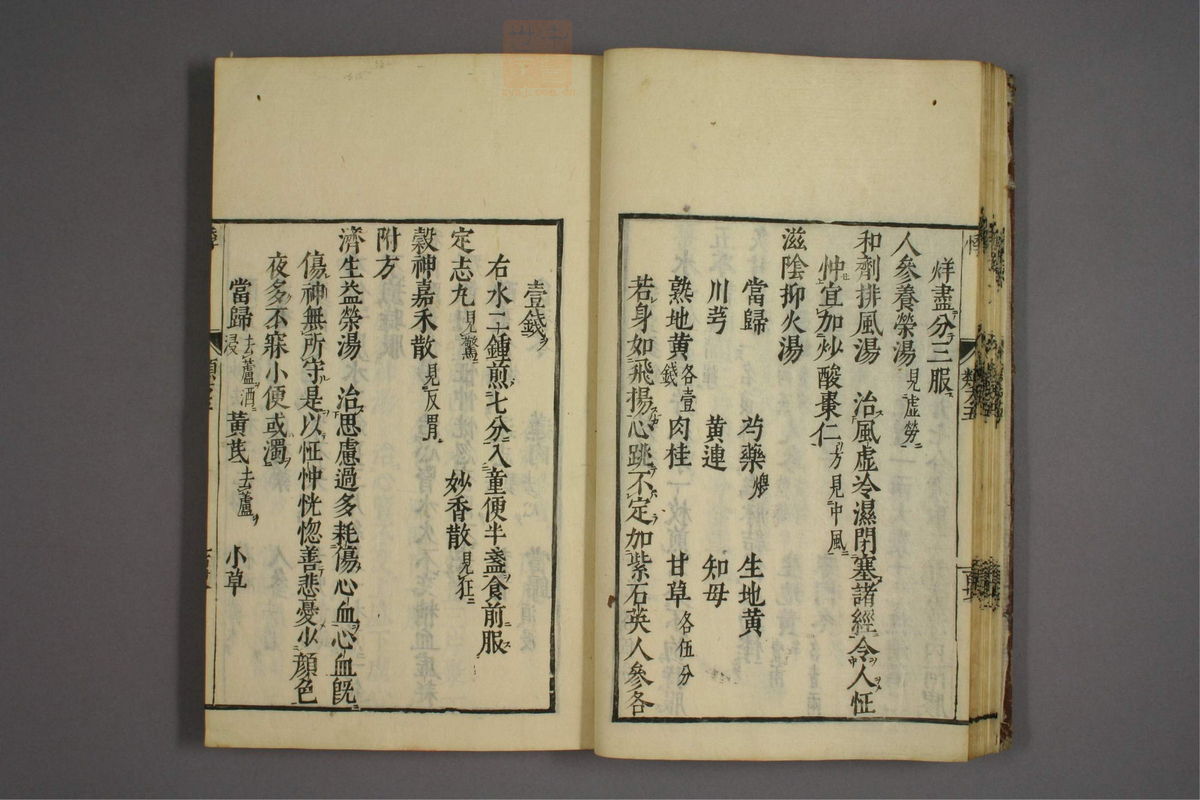 烊盡分三服
人參養榮湯見虛勞
和劑排風湯 治風虛冷濕閉塞諸經令人怔
忡宜加炒酸棗仁方見中風
滋陰抑火湯
當歸 芍藥煨 生地黃
川芎 黃連 知母
熟地黃各壹錢 肉桂 甘草各伍分
若身如飛揚心跳不定加紫石英人參各
壹錢
右水二鍾煎七分入童便半盞食前服
定志丸見驚 妙香散見狂
穀神嘉禾散見反胃
附方
濟生益榮湯 治思慮過多耗傷心血心血既
傷神無所守是以怔忡恍惚善悲憂少顏色
夜多不寐小便或濁
當歸去蘆酒浸 黃芪去蘆 小草